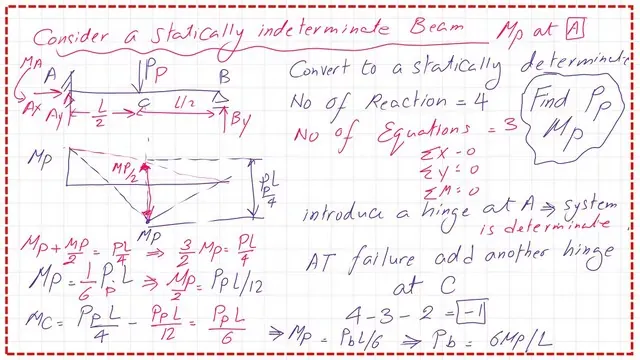 Consider a statically indeterminate Beam Mp at A
MA
Pp
A
B
Ax
Ay
L/2
C
L/2
By
Convert to a statically determinate
No of Reaction = 4
No of Equations = 3
ΣX = 0
ΣY = 0
ΣM = 0
Find Pp
Mp
Mp
Mp/2
PpL/4
Mp
introduce a hinge at A ⇒ system
is determinate
Mp + Mp/2 = PL/4 ⇒ 3/2 Mp = PL/4
Mp = 1/6 PpL ⇒ Mp/2 = PpL/12
Mc = PpL/4 - PpL/12 = PpL/6
AT failure add another hinge
at C
4-3-2 = -1
⇒ Mp = PbL/6 ⇒ Pb = 6Mp/L